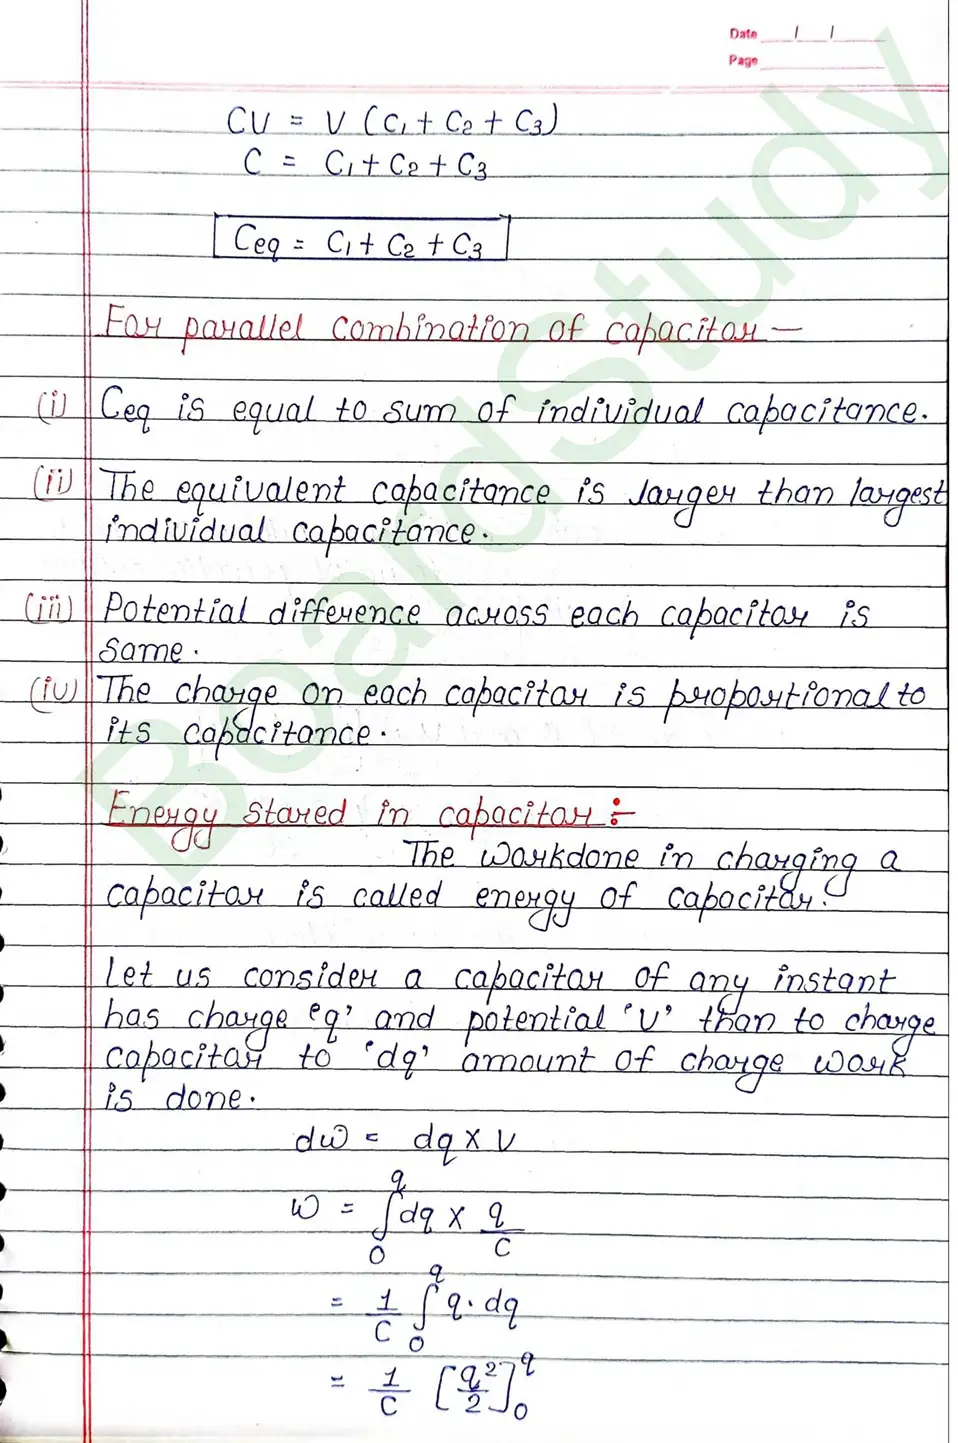 Date / /
Page
CV = V (C₁ + C₂ + C₃)
C = C₁ + C₂ + C₃
Ceq = C₁ + C₂ + C₃
For parallel combination of capacitor —
(i) Ceq is equal to sum of individual capacitance.
(ii) The equivalent capacitance is larger than largest
individual capacitance.
(iii) Potential difference across each capacitor is
same.
(iv) The charge on each capacitor is proportional to
its capacitance.
Energy stored in capacitor :-
The workdone in charging a
capacitor is called energy of capacitor.
Let us consider a capacitor of any instant
has charge 'q' and potential 'V' than to charge
capacitor to 'dq' amount of charge work
is done.
dw = dq × V
w = ∫₀^q dq × q/C
= 1/C ∫₀^q q · dq
= 1/C [q²/2]₀^q
BoardStudy